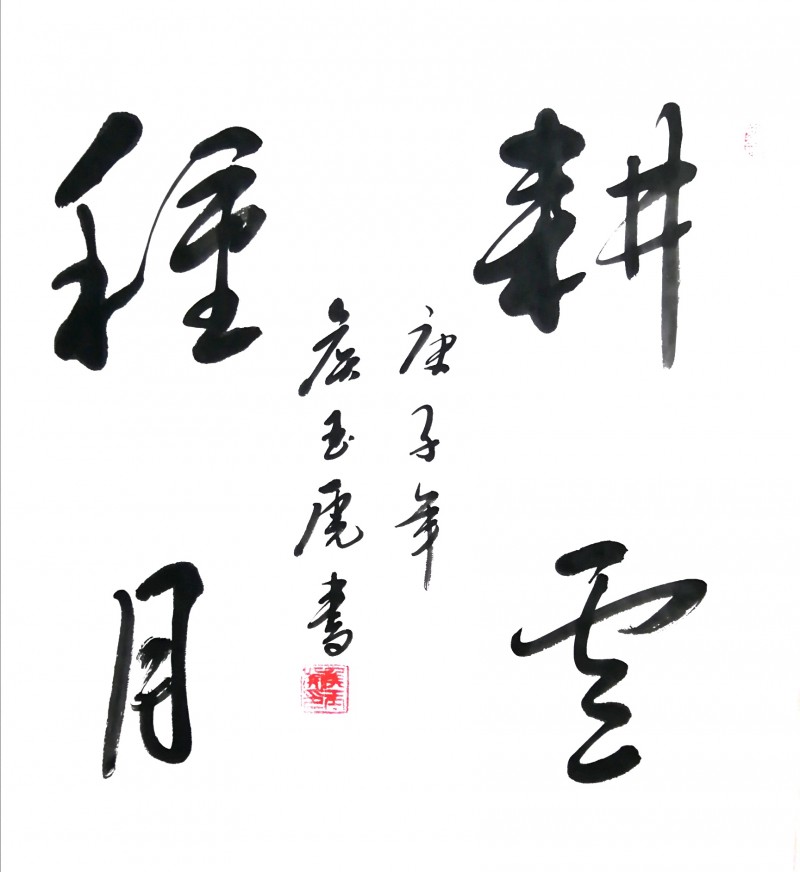 耕雲
種月
庚子年
侯玉虎書